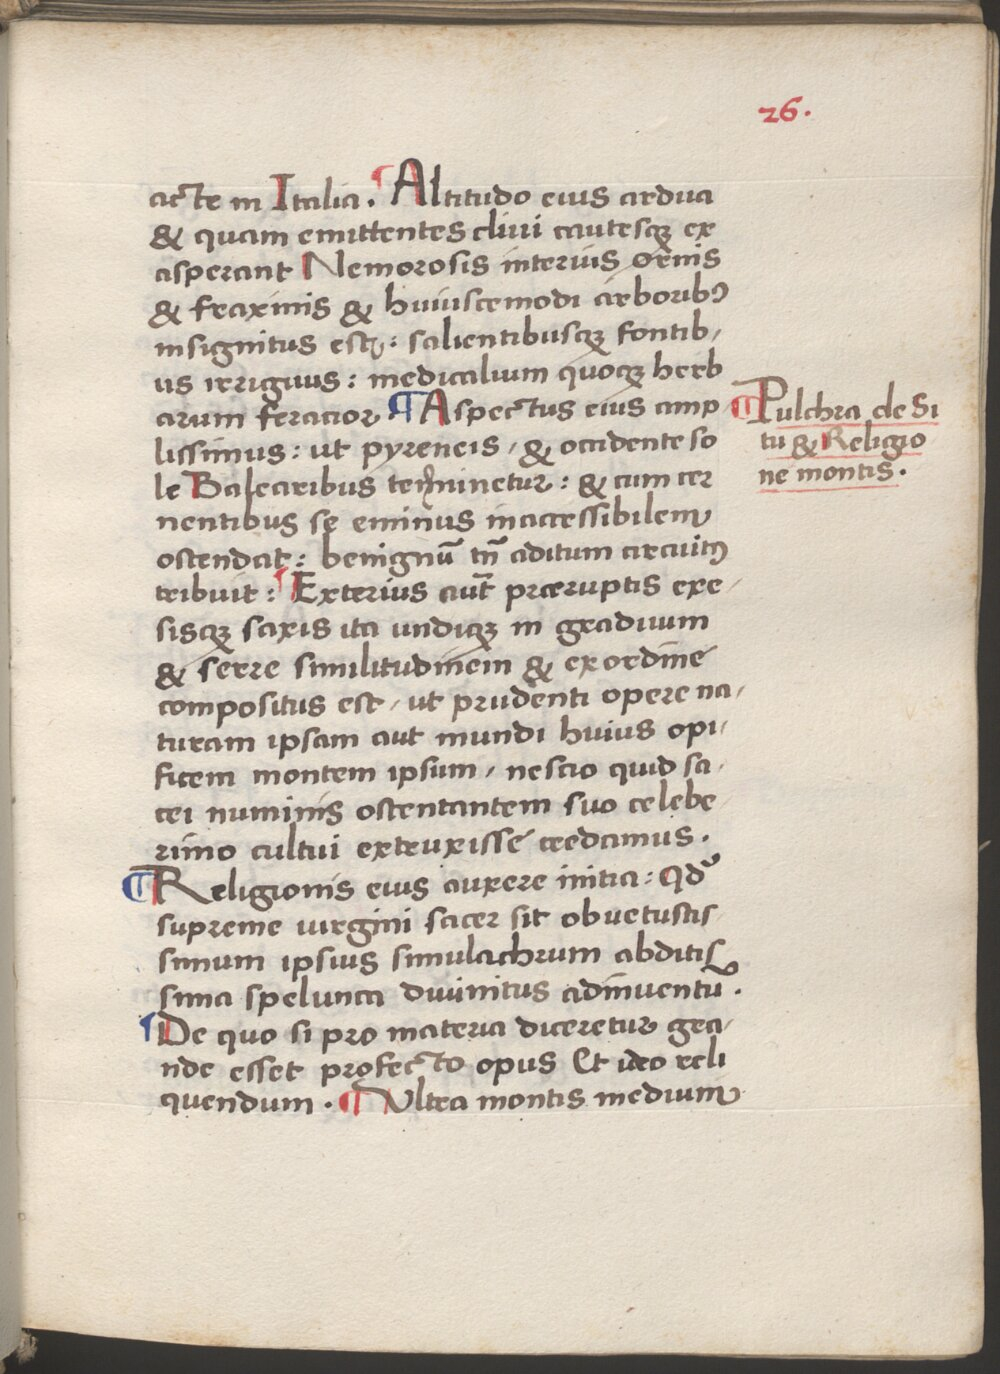 26.
acte in Italia. ¶ Altitudo eius ardua
& quam emittentes cliui cautesqꝫ ex
asperant Nemorosis interius ornis
& fraxinis & huiuscemodi arboribꝰ
insignitus est: salientibusqꝫ fontib,
us irriguus: medicalium quoqꝫ herb
arum feracior ¶ Aspectus eius amp
lissimus: ut pyreneis, & occidente so
le Balearibus terminetur: & cum cer
nentibus se eminus inaccessibilem
ostendat: benignū tn̄ aditum circuitꝰ
tribuit: ¶ Exterius aut̄ præruptis exe,
sisqꝫ saxis ita undiqꝫ in graduum
& serre similitudinem & ex ordine
compositus est, ut prudenti opere na,
turam ipsam aut mundi huius opi,
ficem montem ipsum, nescio quid sa,
cri numinis ostentantem suo celebe,
rimo cultui extruxisse credamus.
¶ Religionis eius auxere initia: Qd̄
supreme uirgini sacer sit ob uetustis,
simum ipsius simulachrum abditis
sima spelunca diuinitus adinuentū.
¶ De quo si pro materia diceretur gra,
nde esset profecto opus Et ideo reli
quendum. ¶ Vltra montis medium
¶ Pulchra de Si
tu & Religio
ne montis.